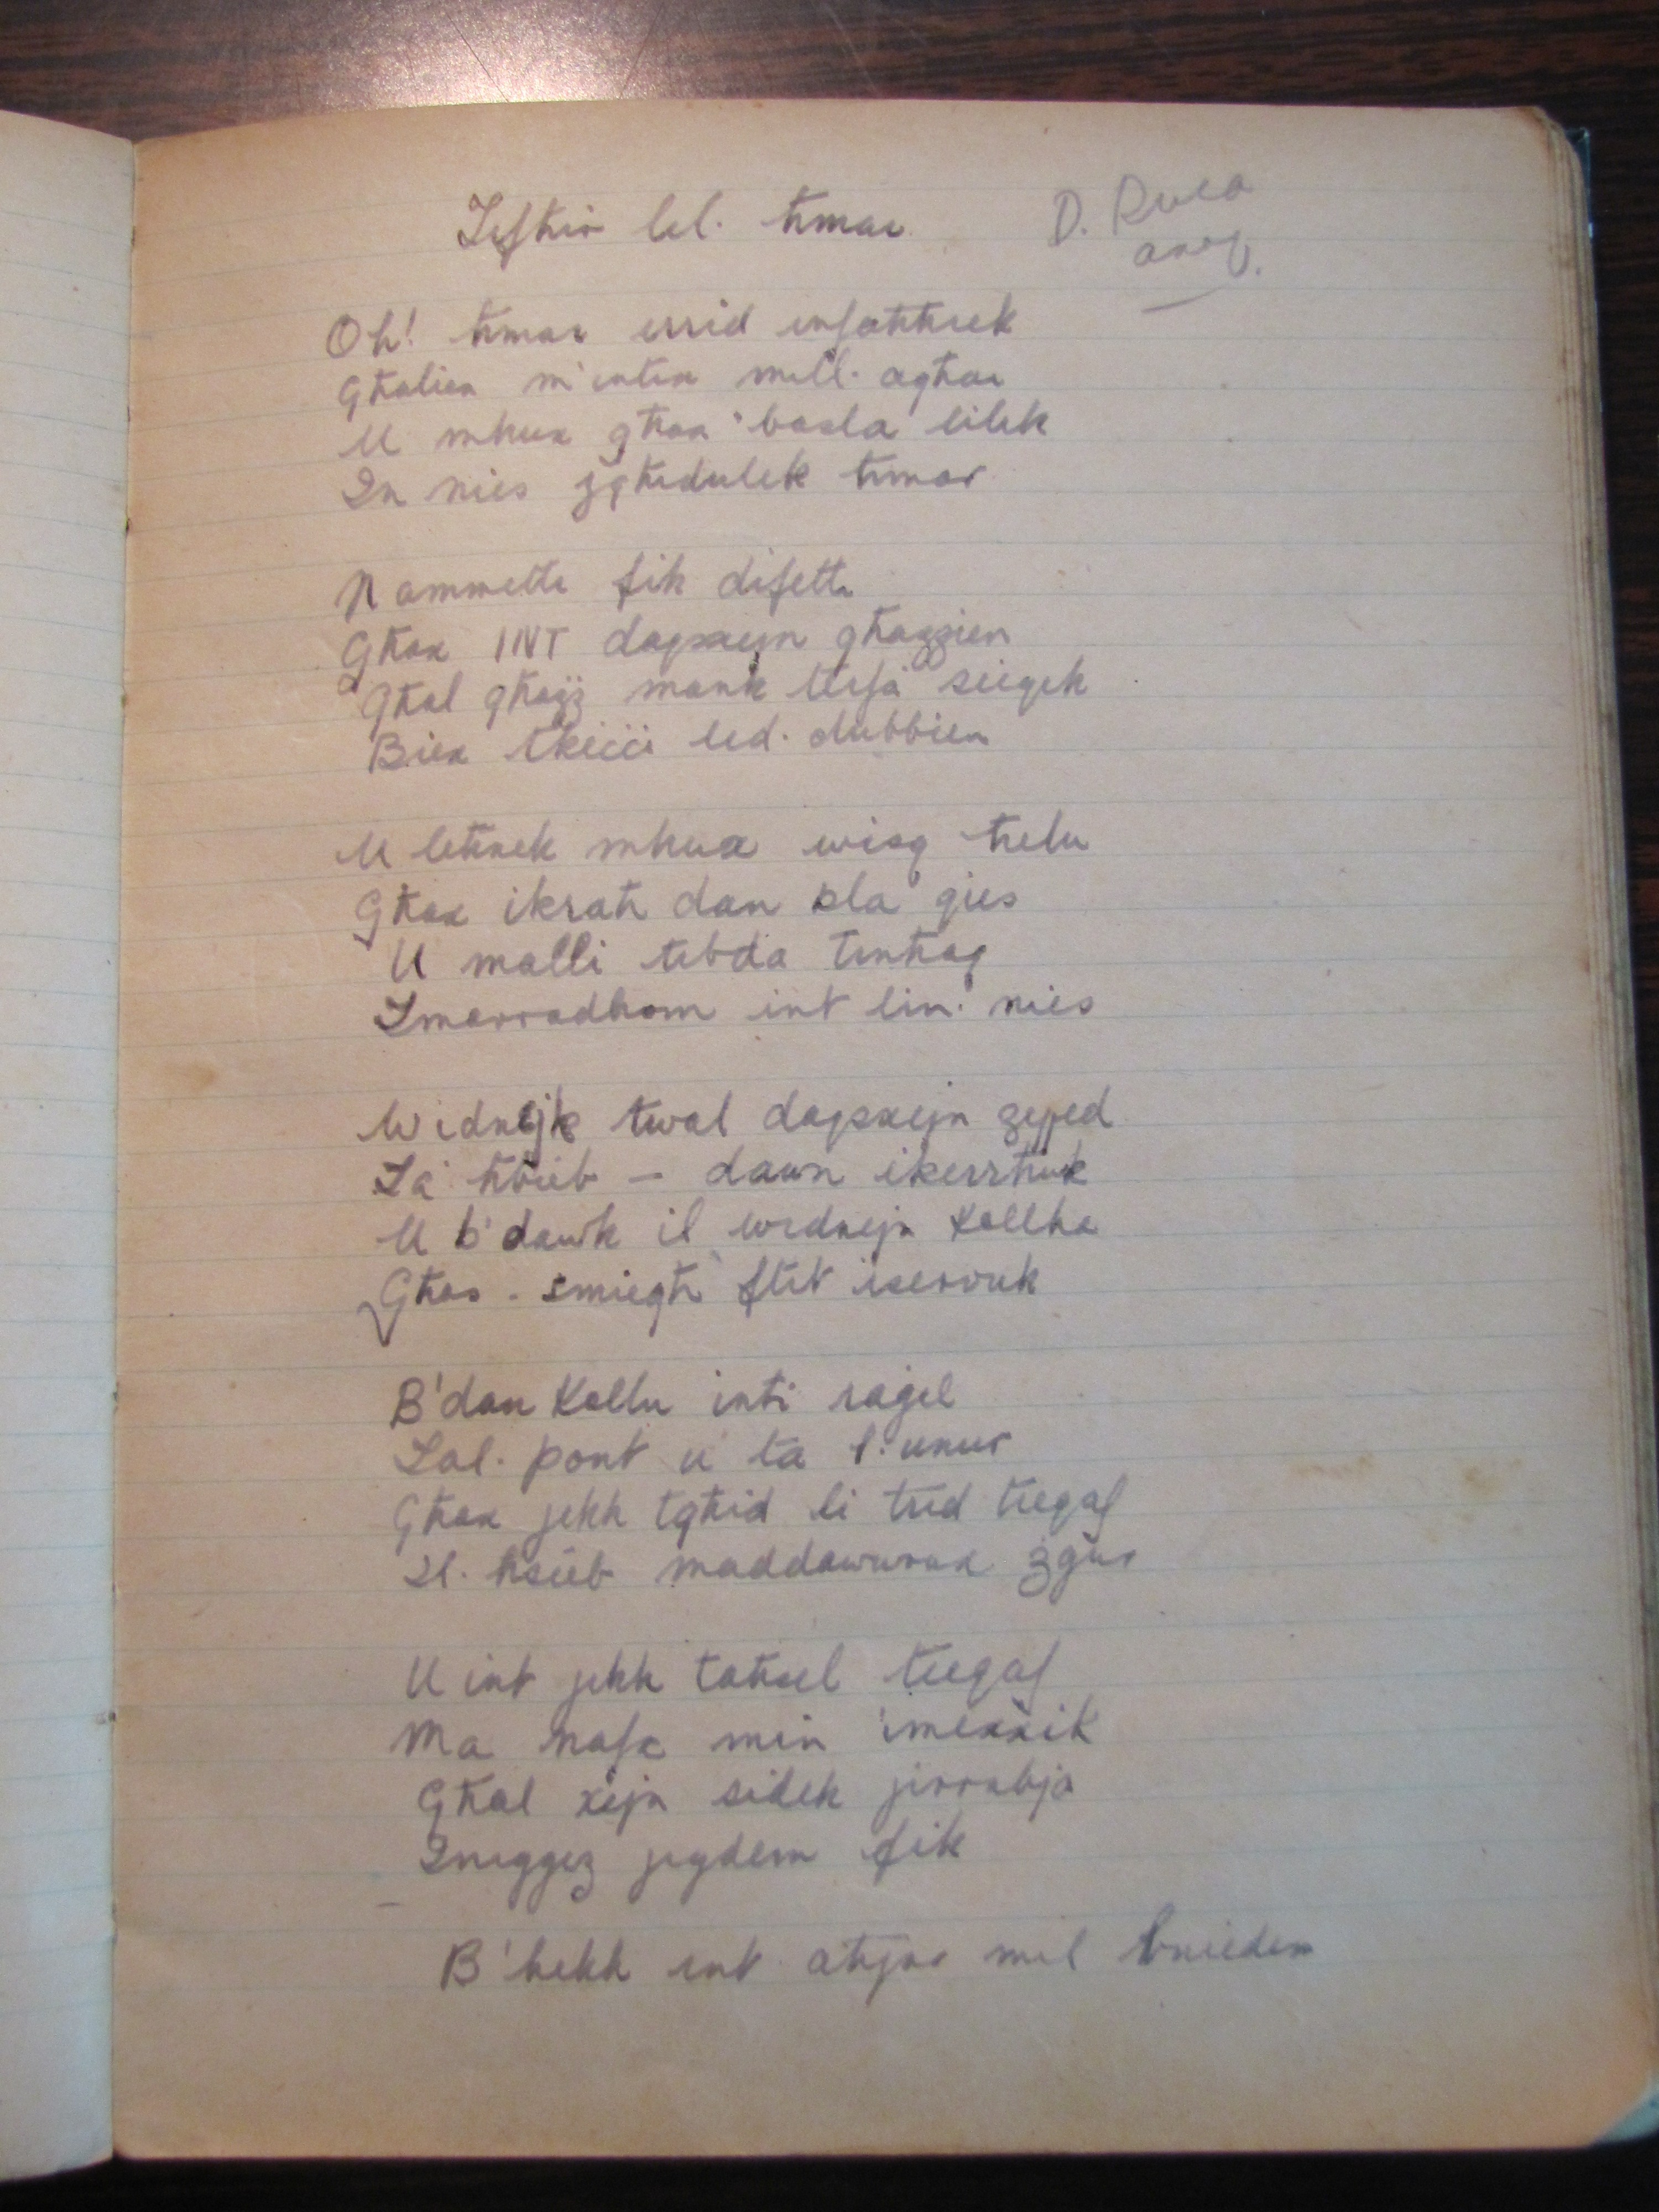 Tifħir lil. ħmar
D.
Oh! ħmar irrid infaħħrek
Għaliex m'intix mill. agħar
U mhux għax baxla lilek
In nies jgħidulek ħmar
Nammetti fik difetti
Għax INT dapxejn għażżien
Għal għajj mank terfa' siegek
Biex tkeċċi led. dubbien
U leħnek mhux wisq ħelu
Għax ikraħ dan bla qies
U malli tibda tinħaq
Tmarradhom int lin. nies
Widnejk twal dapxejn żejjed
Ja ħbieb — dawn ikerrhuk
U b'dawk il widnejn kollha
Għas. smiegħ ftit iservuk
B'dan kollu inti raġel
Tal. pont u ta l. unur
Għax jekk tgħid li trid tieqaf
Il. ħsieb maddawwrux żgur
U int jekk taħsel tieqaf
Ma nafx min imexxik
Għal xejn sidek jirrabja
Iniggeż jigdem fik
B'hekk int aħjar mil bniedem